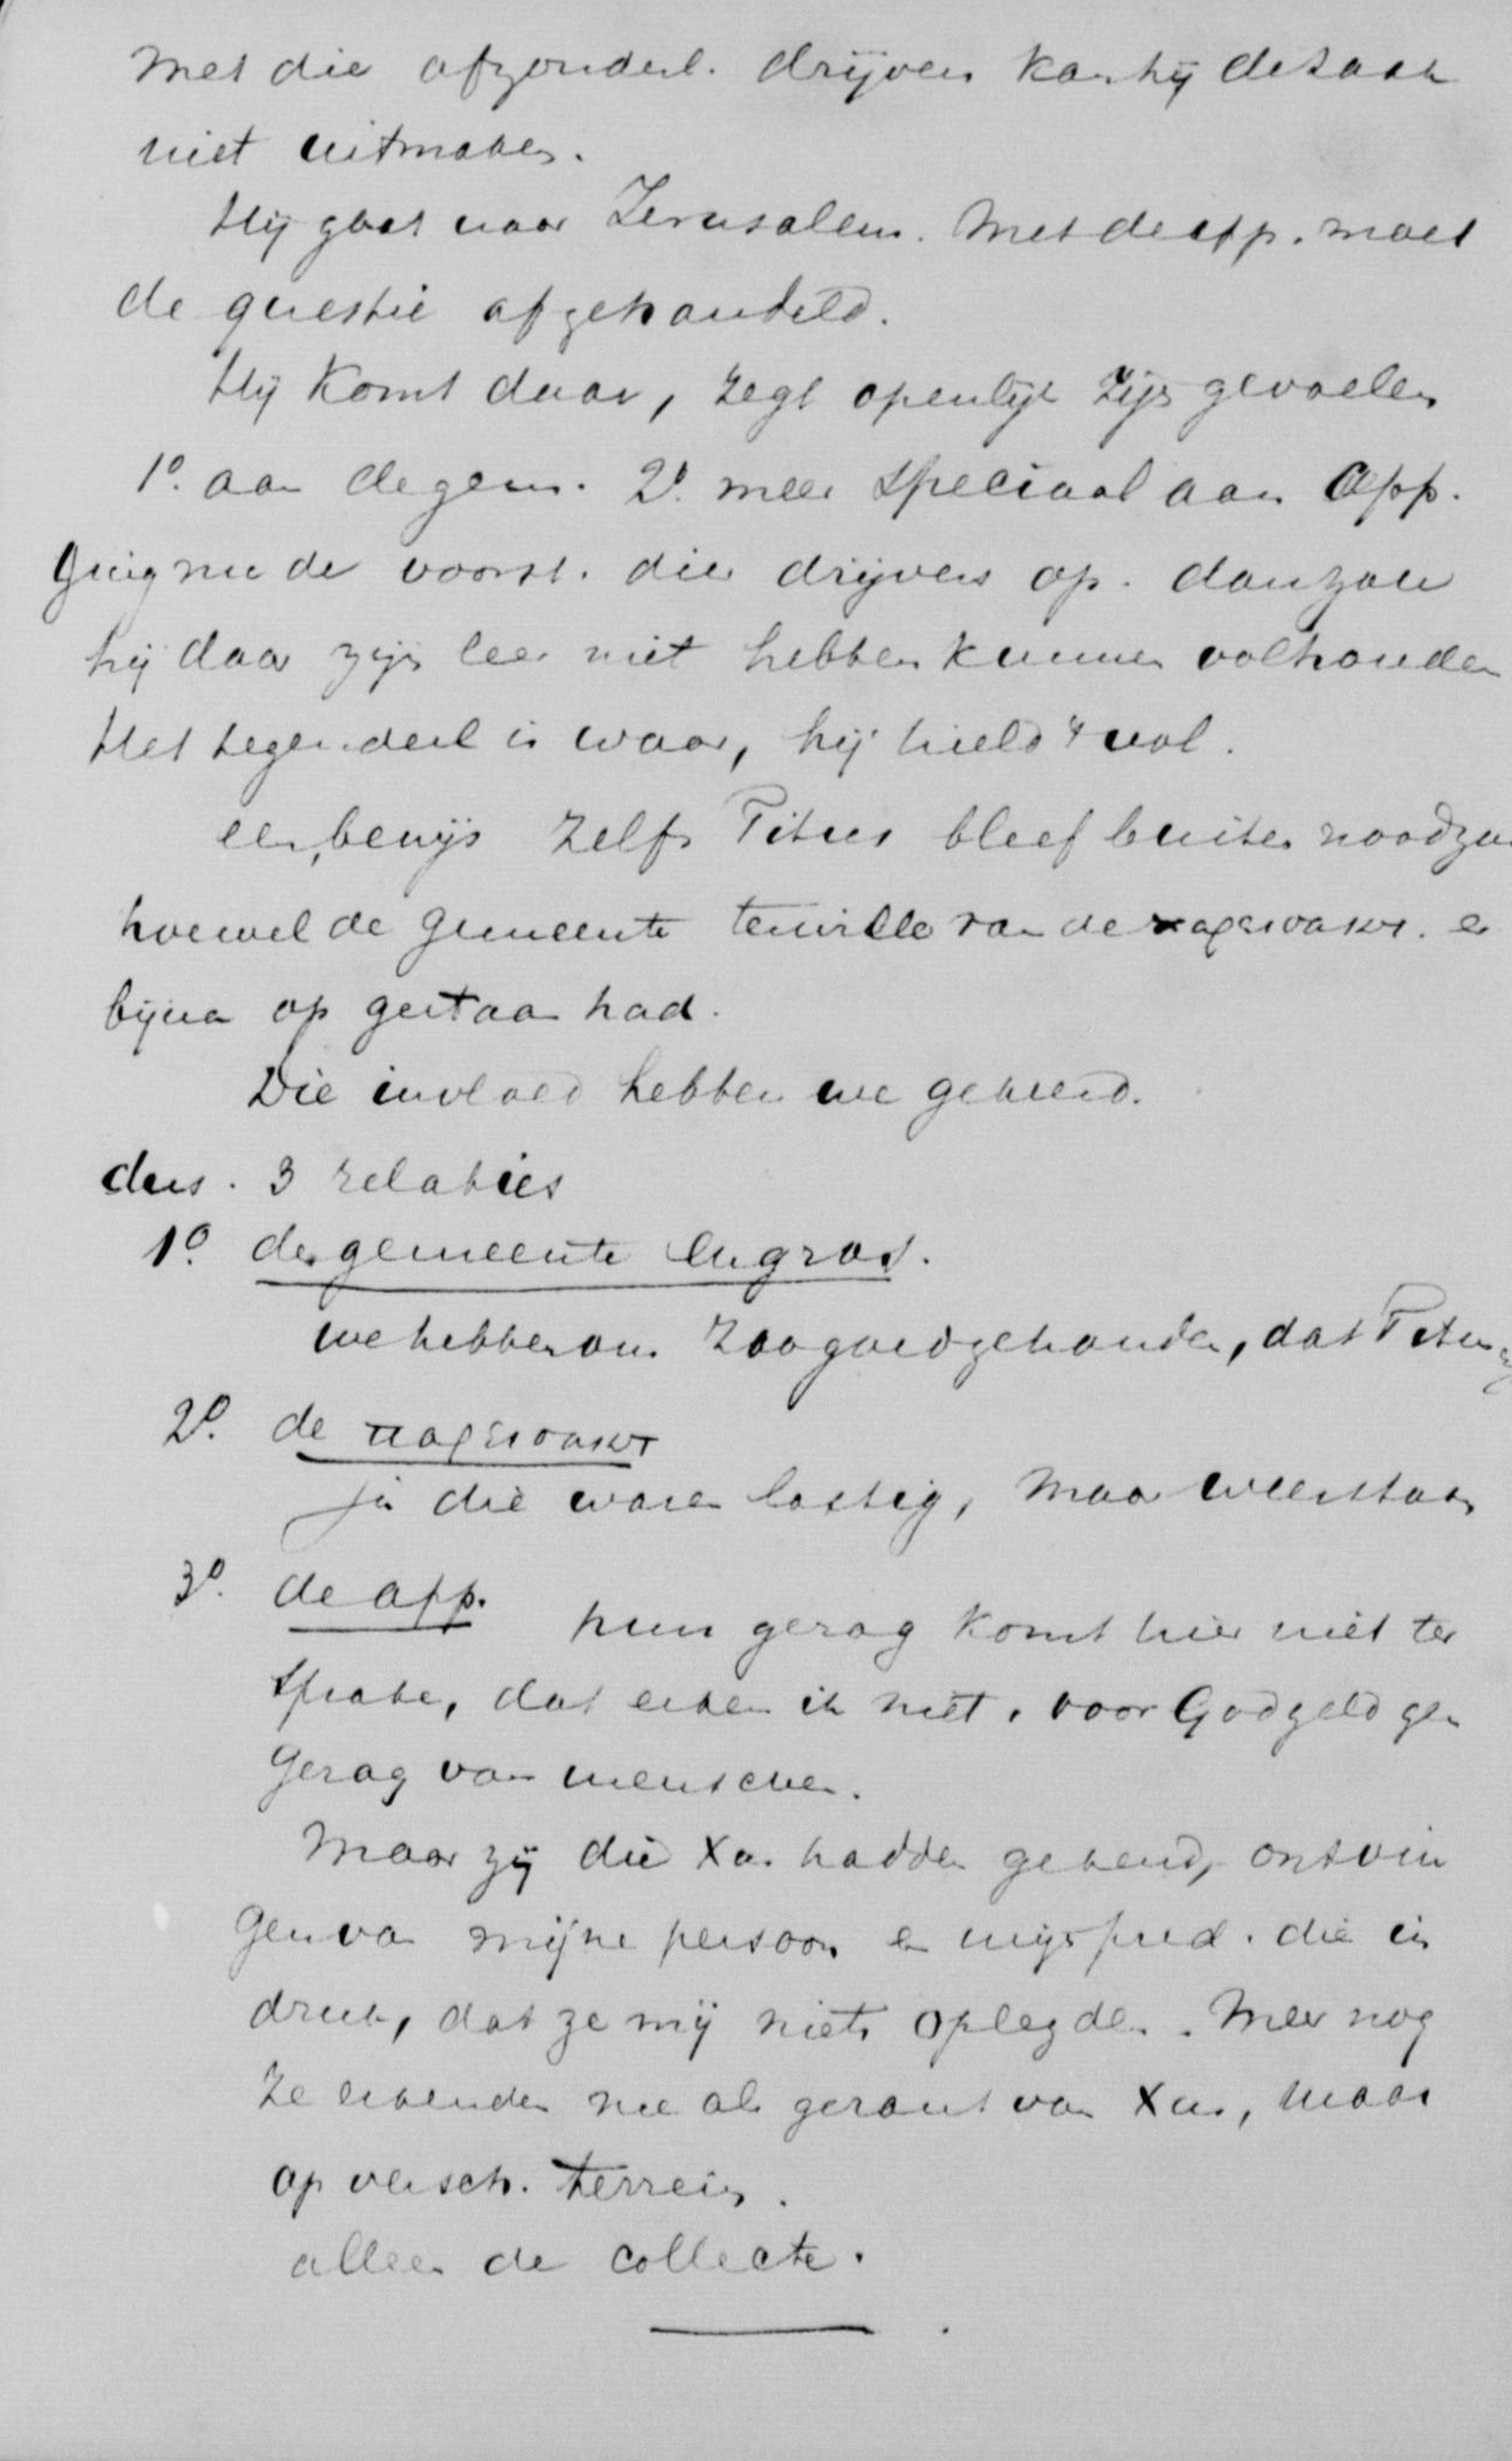 Met die afzonderl. drijvers kan hij de zaak
niet uitmaken.
Hij gaat naar Jerusalem. Met de app. moet
de questie afgehandeld.
Hij komt daar, zegt openlijk zijn gevoelen
1º. aan de gem. 2º. meer speciaal aan App.
Ging nu de voorst. dier drijvers op. dan zou
hij daar zijn leer niet hebben kunnen volhouden
Het tegendeel is waar, hij hield 't vol.
een bewijs zelfs Titus bleef buiten noodza
hoewel de gemeente terwille van de παρεισακτ. er
bijna op gestaan had.
Die invloed hebben we gekeerd.
dus. 3 relaties
1º. de gemeente en gros.
we hebben ons zoo goed gehouden, dat Titus
2º. de παρεισακτ
ja die waren lastig, maar weerstaan
3º. de app. hun gezag komt hier niet ter
sprake, dat erken ik niet, voor God geld geen
gezag van menschen.
Maar zij die Xus hadden gekend, ontvin
gen van mijne persoon en mijn pred. die in
druk, dat ze mij niets oplegden. Meer nog
ze erkenden me als gezant van Xus, maar
op versch. terrein.
alleen de collecte.